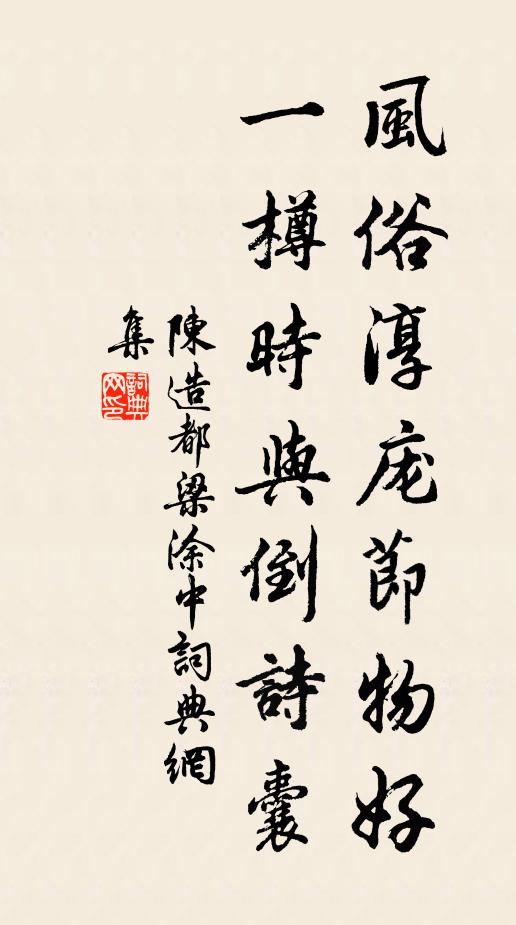 風俗淳庞節物好
一樽時與倒詩囊
陳造都梁涂中詞典網
集
詞典
网印